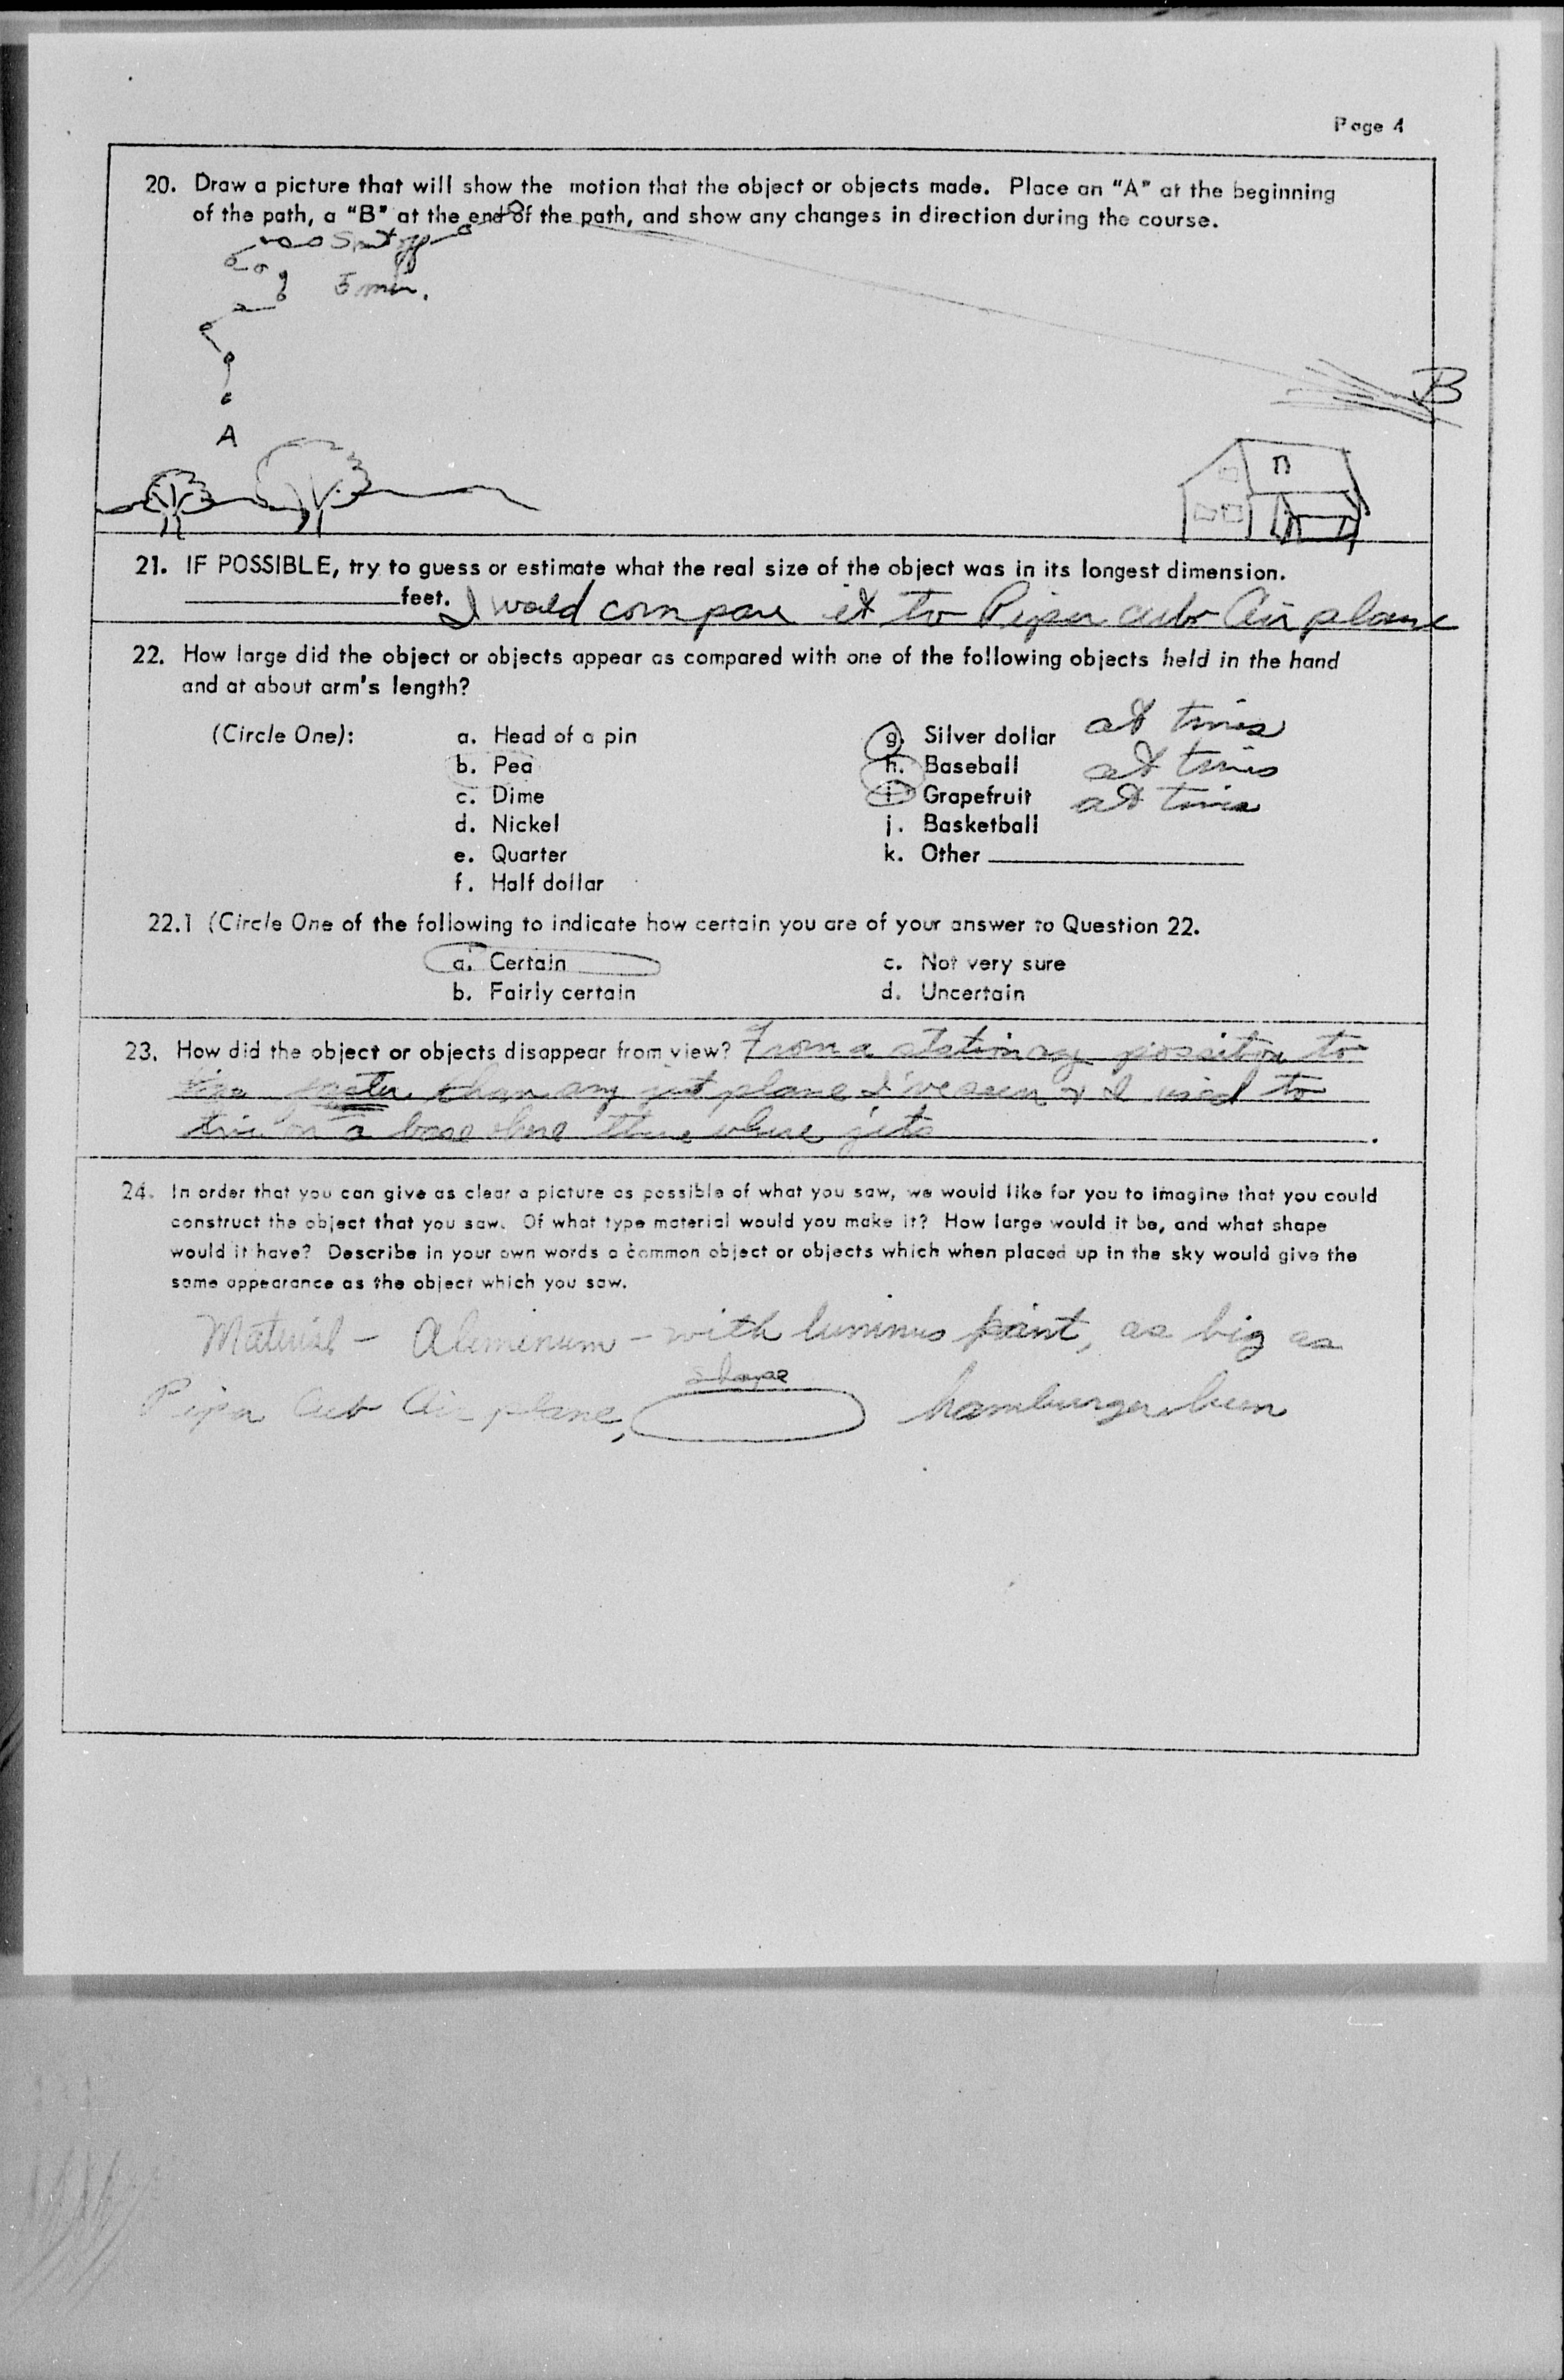 Page 4
20. Draw a picture that will show the motion that the object or objects made. Place an "A" at the beginning
of the path, a "B" at the end of the path, and show any changes in direction during the course.
5 min.
B
A
21. IF POSSIBLE, try to guess or estimate what the real size of the object was in its longest dimension.
feet. I would compare it to Piper cub Air plane
22. How large did the object or objects appear as compared with one of the following objects held in the hand
and at about arm's length?
(Circle One): a. Head of a pin g. Silver dollar at times
b. Pea h. Baseball at times
c. Dime i. Grapefruit at times
d. Nickel j. Basketball
e. Quarter k. Other
f. Half dollar
22.1 (Circle One of the following to indicate how certain you are of your answer to Question 22.
a. Certain c. Not very sure
b. Fairly certain d. Uncertain
23. How did the object or objects disappear from view? From a stationary position to
than any jet plane I've seen & I used to
a base where jets
24. In order that you can give as clear a picture as possible of what you saw, we would like for you to imagine that you could
construct the object that you saw. Of what type material would you make it? How large would it be, and what shape
would it have? Describe in your own words a common object or objects which when placed up in the sky would give the
same appearance as the object which you saw.
Material - Alumenum - with luminus paint, as big as
shape
Piper Cub Air plane, hamburger bun